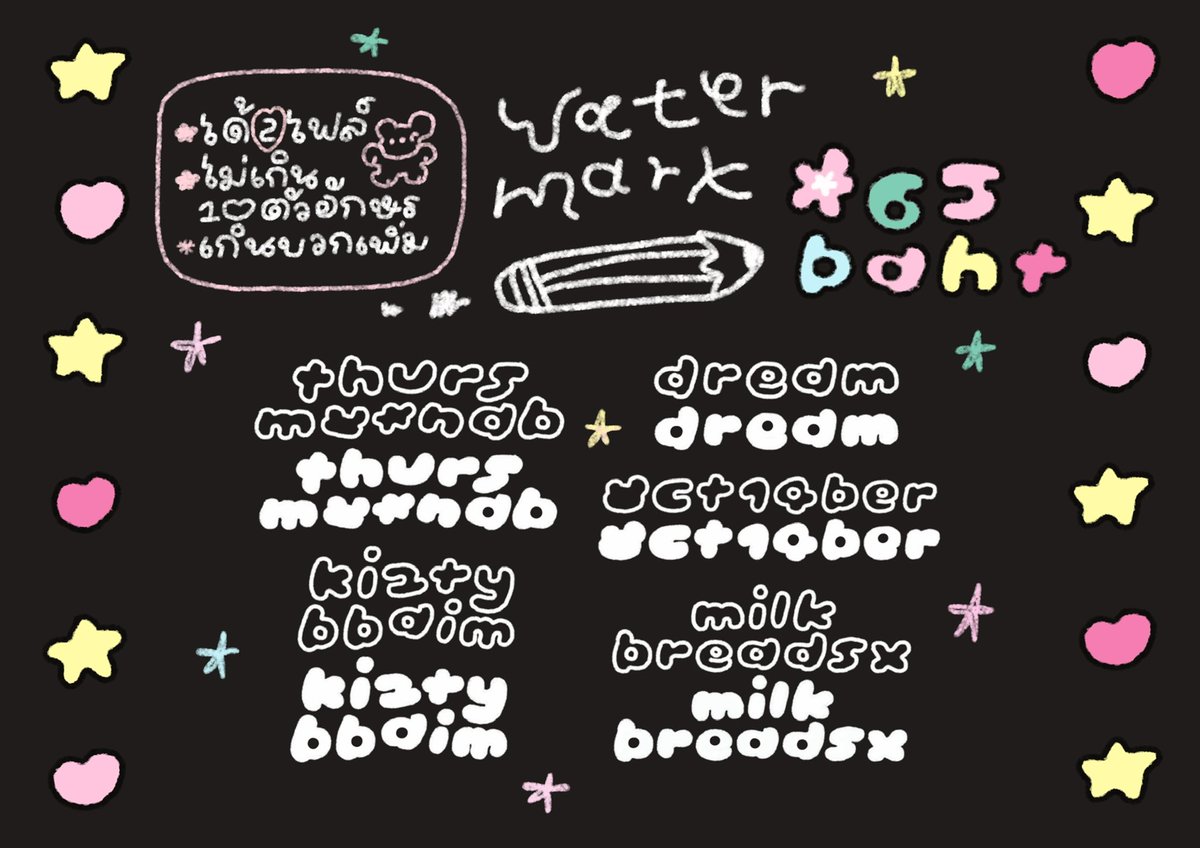 ได้ 2 ไฟล์
ไม่เกิน
10 ตัวอักษร
เกินบวกเพิ่ม
water
mark
65
baht
thurs
murnab
thurs
murnab
kizty
bbaim
kizty
bbaim
dream
dream
oct1ober
oct1ober
milk
breadsx
milk
breadsx